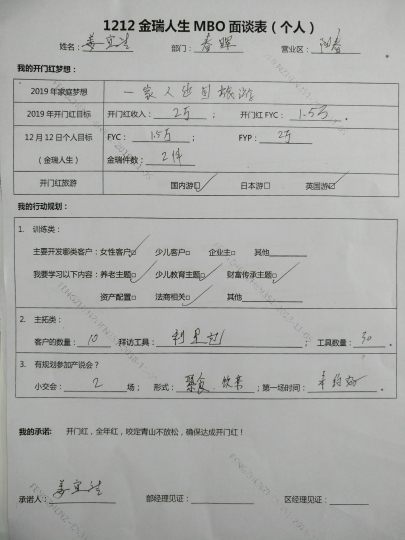 1212金瑞人生MBO面谈表（个人）
姓名：姜宜 部门：春晖 营业区：阳春
我的开门红梦想：
2019年家庭梦想 一家人出国旅游
2019年开门红目标 开门红收入：2万 ； 开门红FYC：1.5万
12月12日个人目标（金瑞人生） FYC：1.5万 ； FYP：2万
金瑞件数：2件
开门红旅游 国内游☑ 日本游□ 英国游☑
我的行动规划：
1. 训练类：
主要开发哪类客户：女性客户☑ 少儿客户□ 企业主□ 其他
我要学习以下内容：养老主题☑ 少儿教育主题☑ 财富传承主题☑
资产配置□ 法商相关☑ 其他
2. 主拓类：
客户的数量：10 拜访工具： ； 工具数量：30 .
3. 有规划参加产说会？
小交会：2 场； 形式：聚食、饮茶 ；第一场时间：
我的承诺： 开门红，全年红，咬定青山不放松，确保达成开门红！
承诺人：姜宜 部经理见证： 区经理见证：